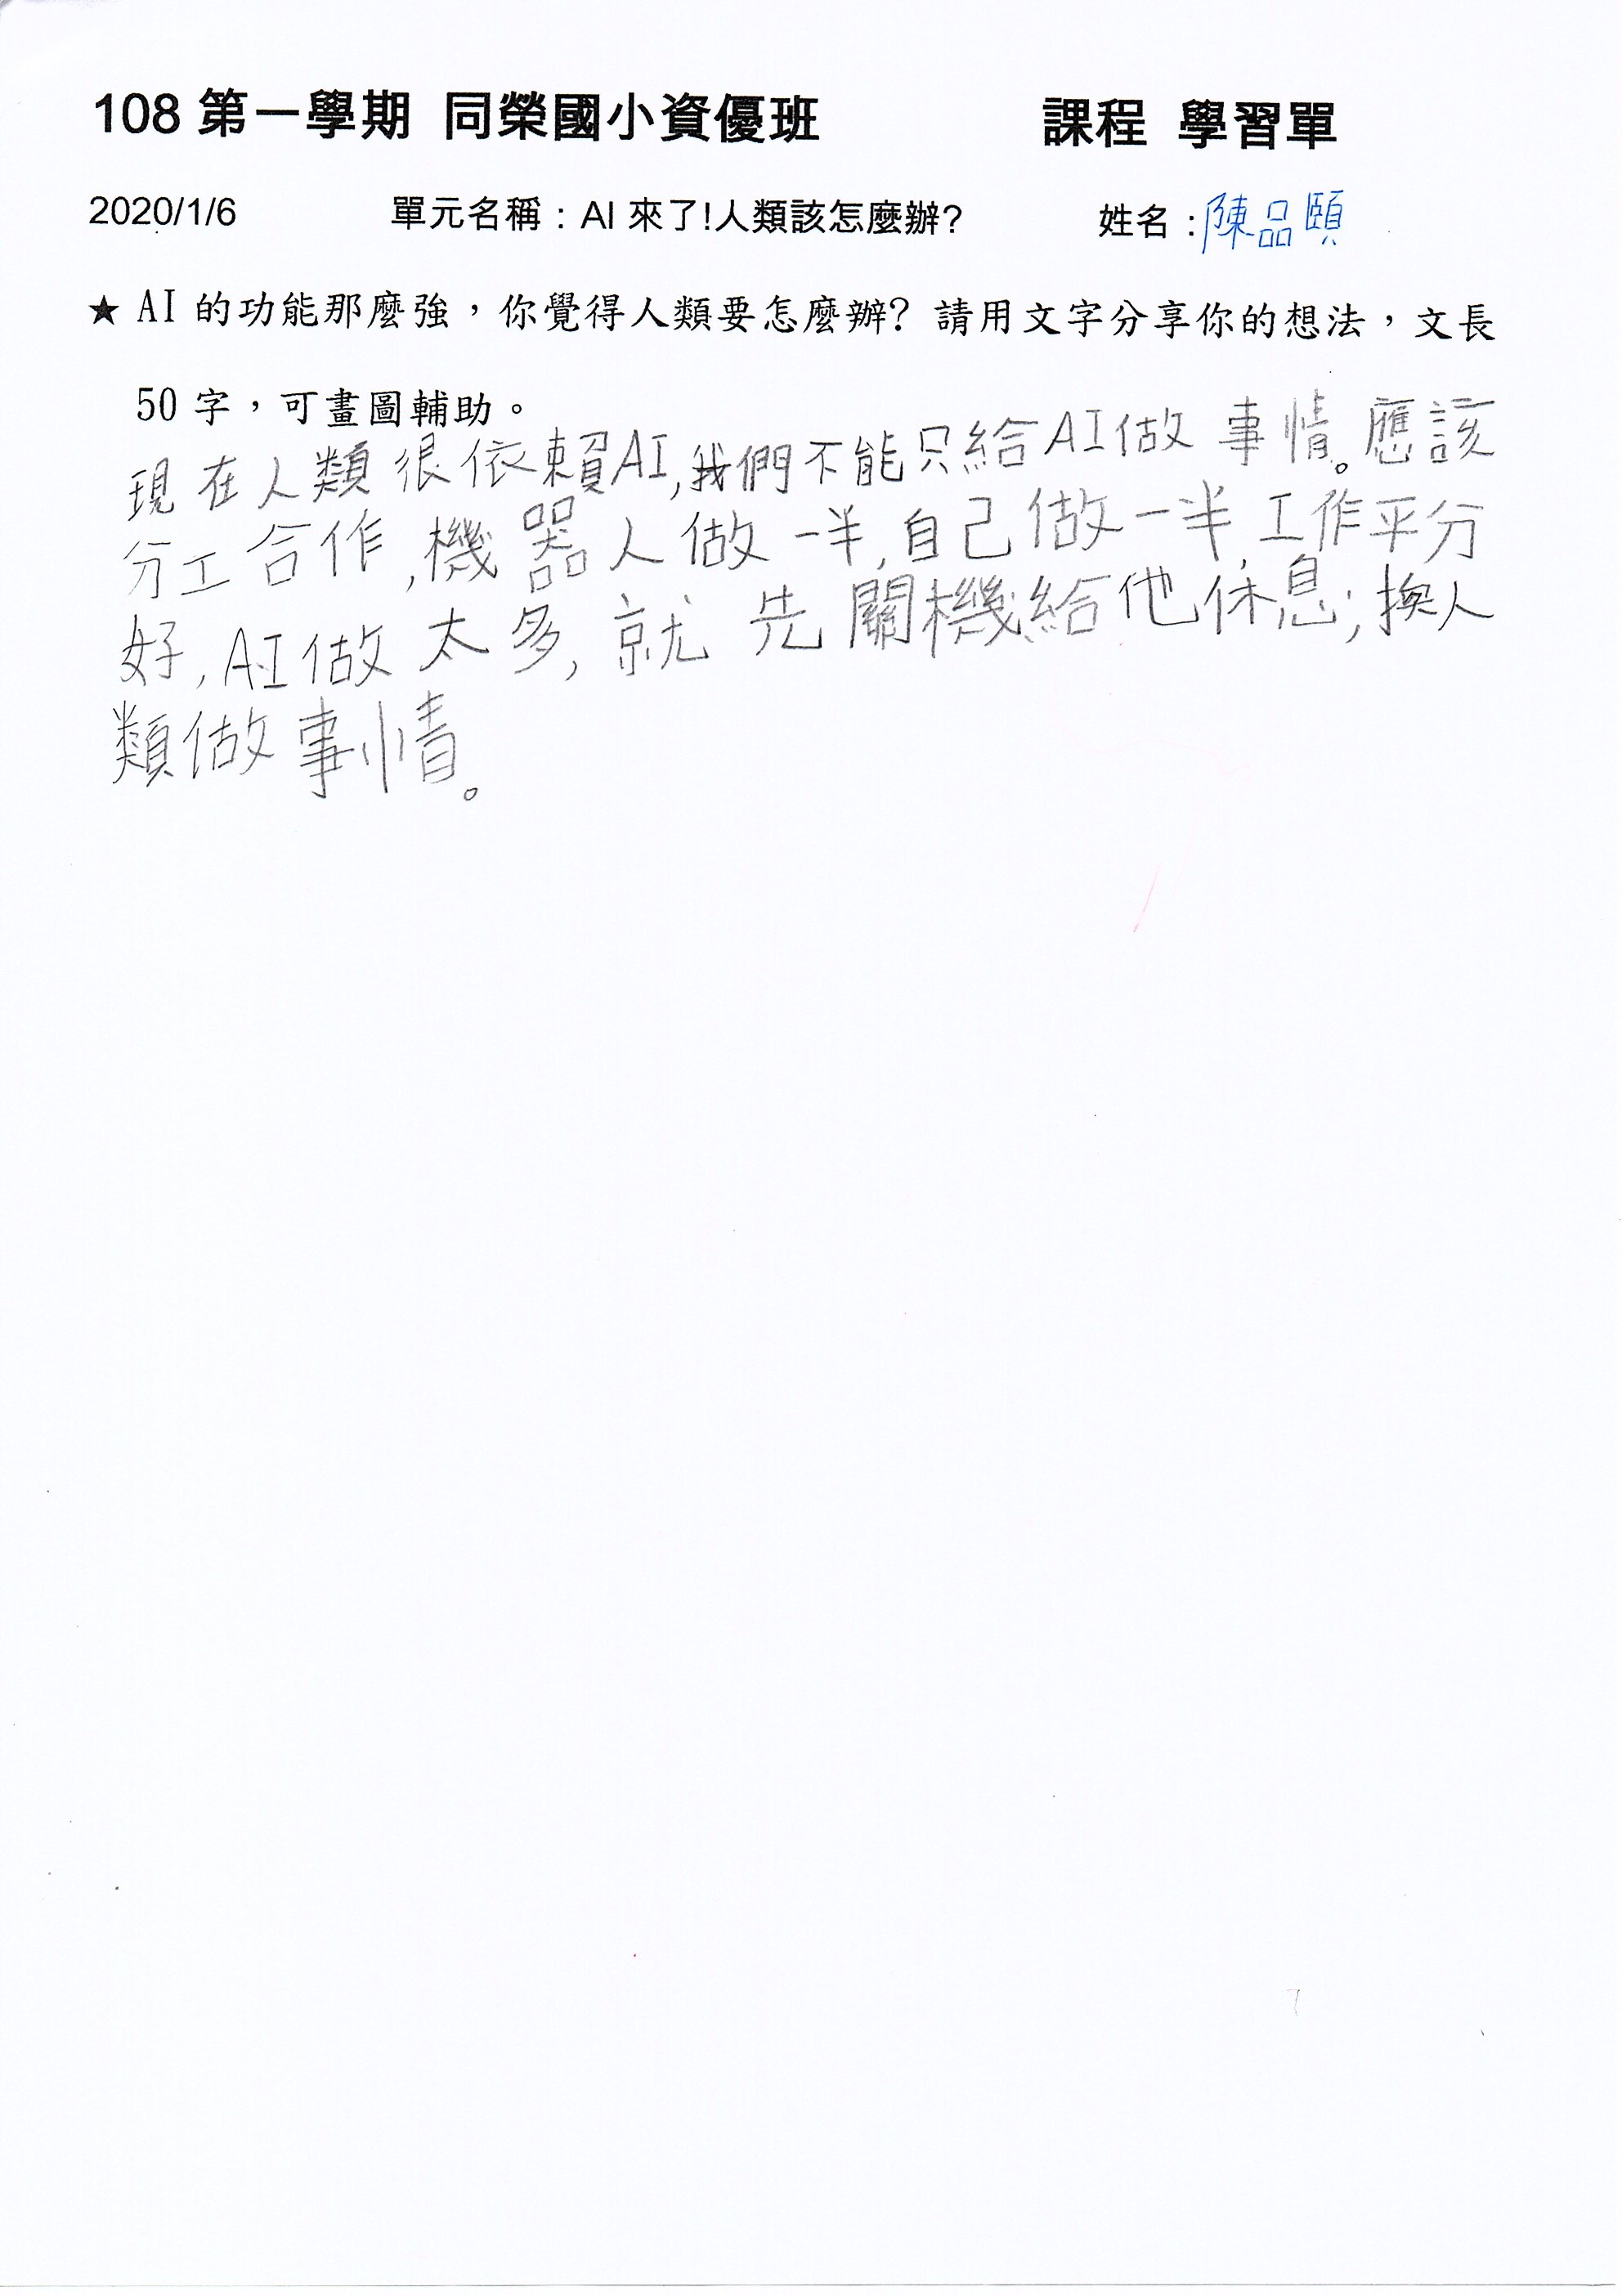 108 第一學期 同榮國小資優班 課程 學習單
2020/1/6 單元名稱：AI 來了!人類該怎麼辦? 姓名：陳品頤
★ AI 的功能那麼強，你覺得人類要怎麼辦? 請用文字分享你的想法，文長
50 字，可畫圖輔助。
現在人類很依賴AI,我們不能只給AI做事情。應該
分工合作,機器人做一半,自己做一半,工作平分
好,AI做太多,就先關機給他休息;換人
類做事情。